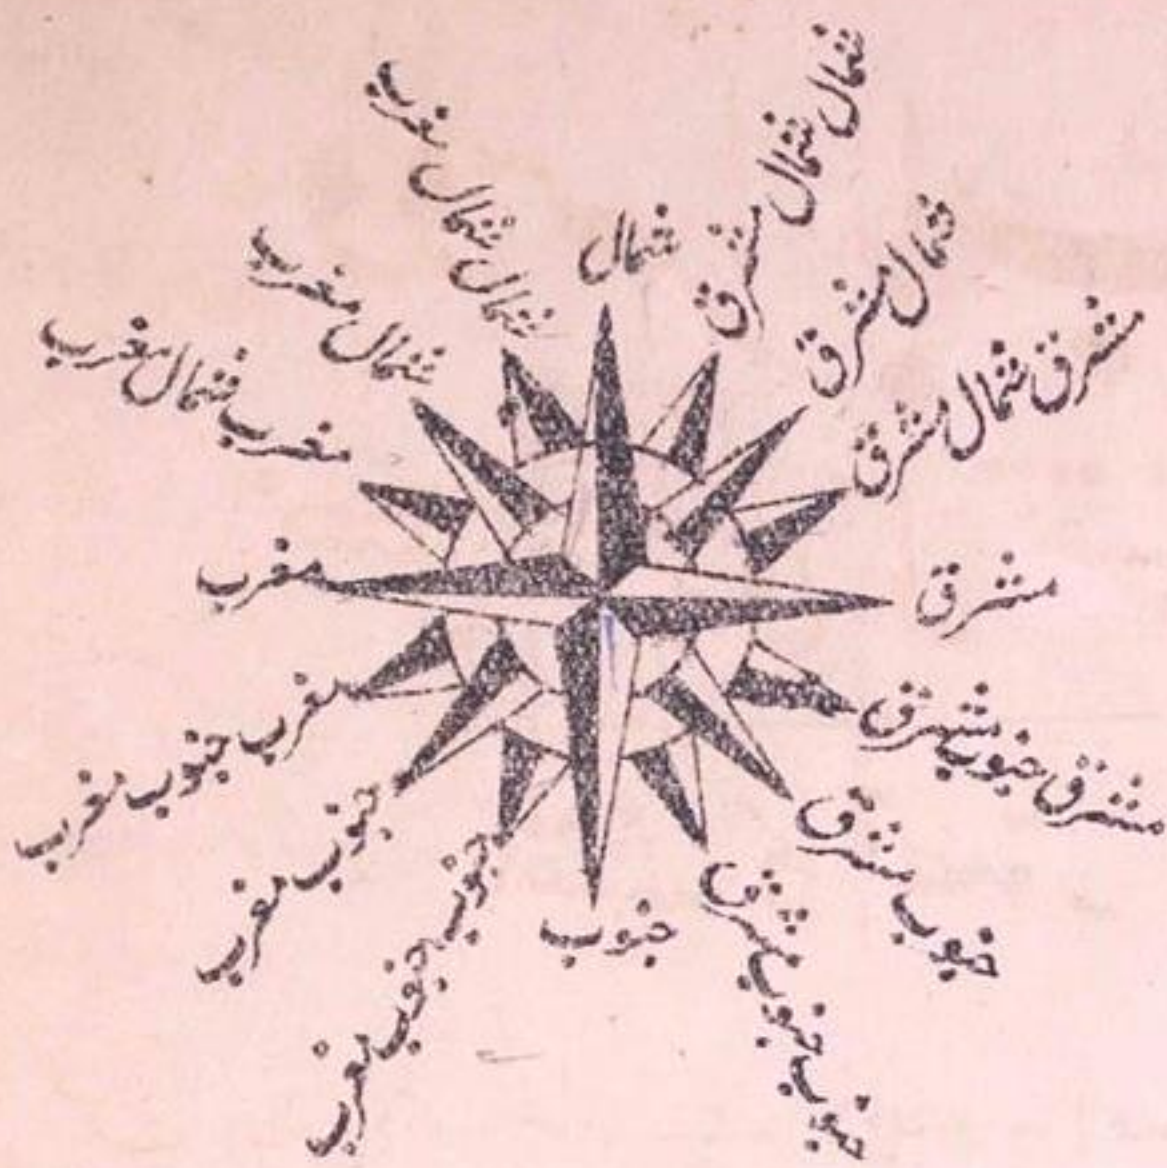 شمال
شمال شمال مشرق
شمال مشرق
مشرق شمال مشرق
مشرق
مشرق جنوب مشرق
جنوب مشرق
جنوب جنوب مشرق
جنوب
جنوب جنوب مغرب
جنوب مغرب
مغرب جنوب مغرب
مغرب
مغرب شمال مغرب
شمال مغرب
شمال شمال مغرب